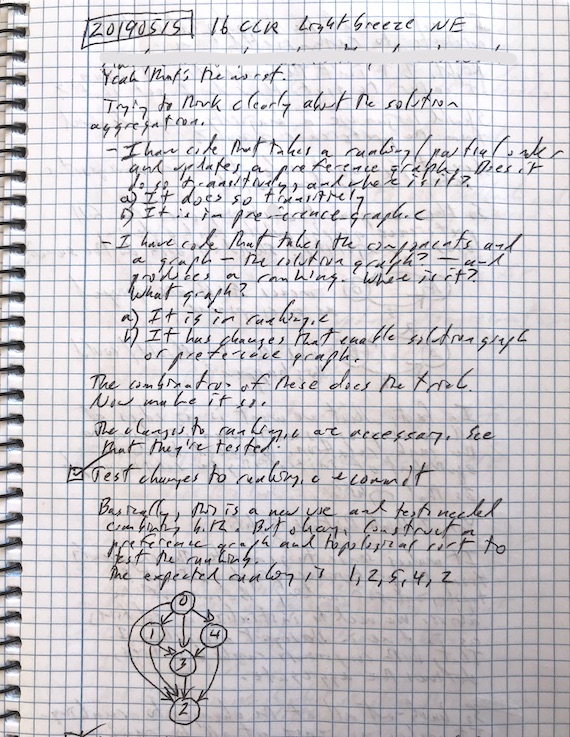 20190515 16 CLR Light breeze NE
Yeah that's the worst.
Trying to think clearly about the solution
aggregation.
- I have code that takes a ranking/partial order
and updates a preference graph. Does it
do so transitively, and where is it?
a) It does so transitively
b) It is in preference graph.c
- I have code that takes the components and
a graph – the solution graph? – and
produces a ranking. Where is it?
What graph?
a) It is in ranking.c
b) It has changes that enable solution graph
or preference graph.
The combination of these does the trick.
Now make it so.
The changes to ranking.c are necessary. See
that they're tested.
Test changes to ranking.c & commit
Basically, this is a new use and tests needed
combining both. But okay. Construct a
preference graph and topological sort to
test the ranking.
The expected ranking is 1, 2, 5, 4, 2
0
1 4
3
2